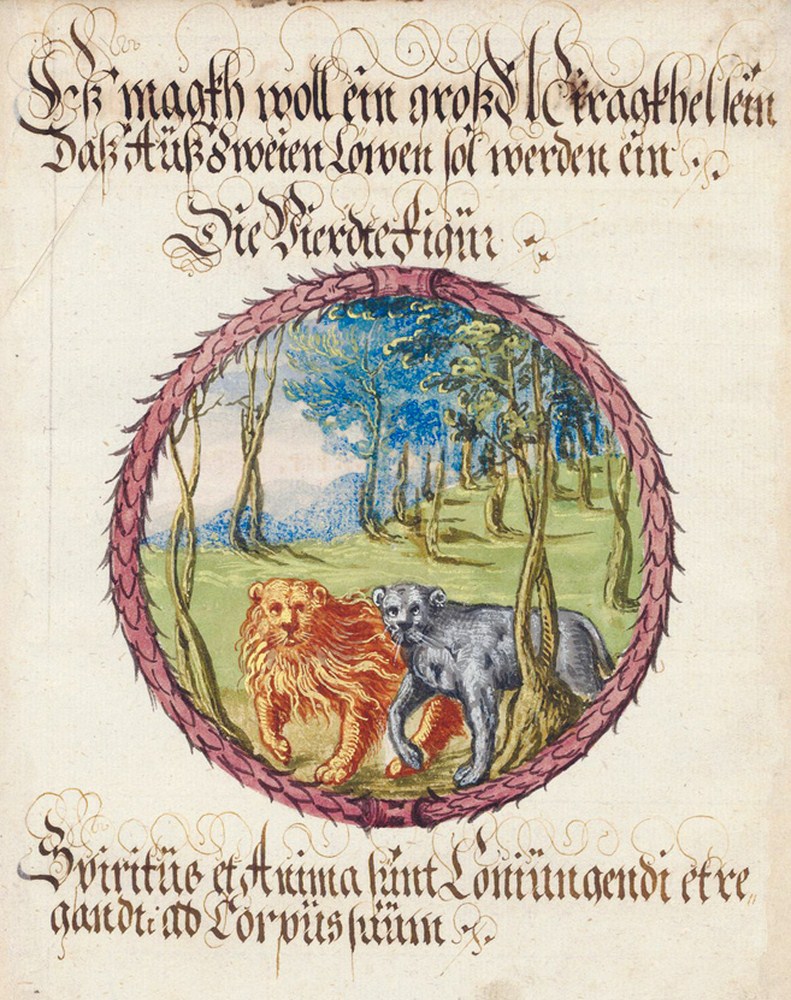 Eß magkh woll ein groß Mÿragkhel sein
Daß Aüß Zweien Lowen sol werden ein
Die Vierdte Figür
Spiritüs et Anima sünt Coniüngendi et re„
gandi ad Corpüs süüm